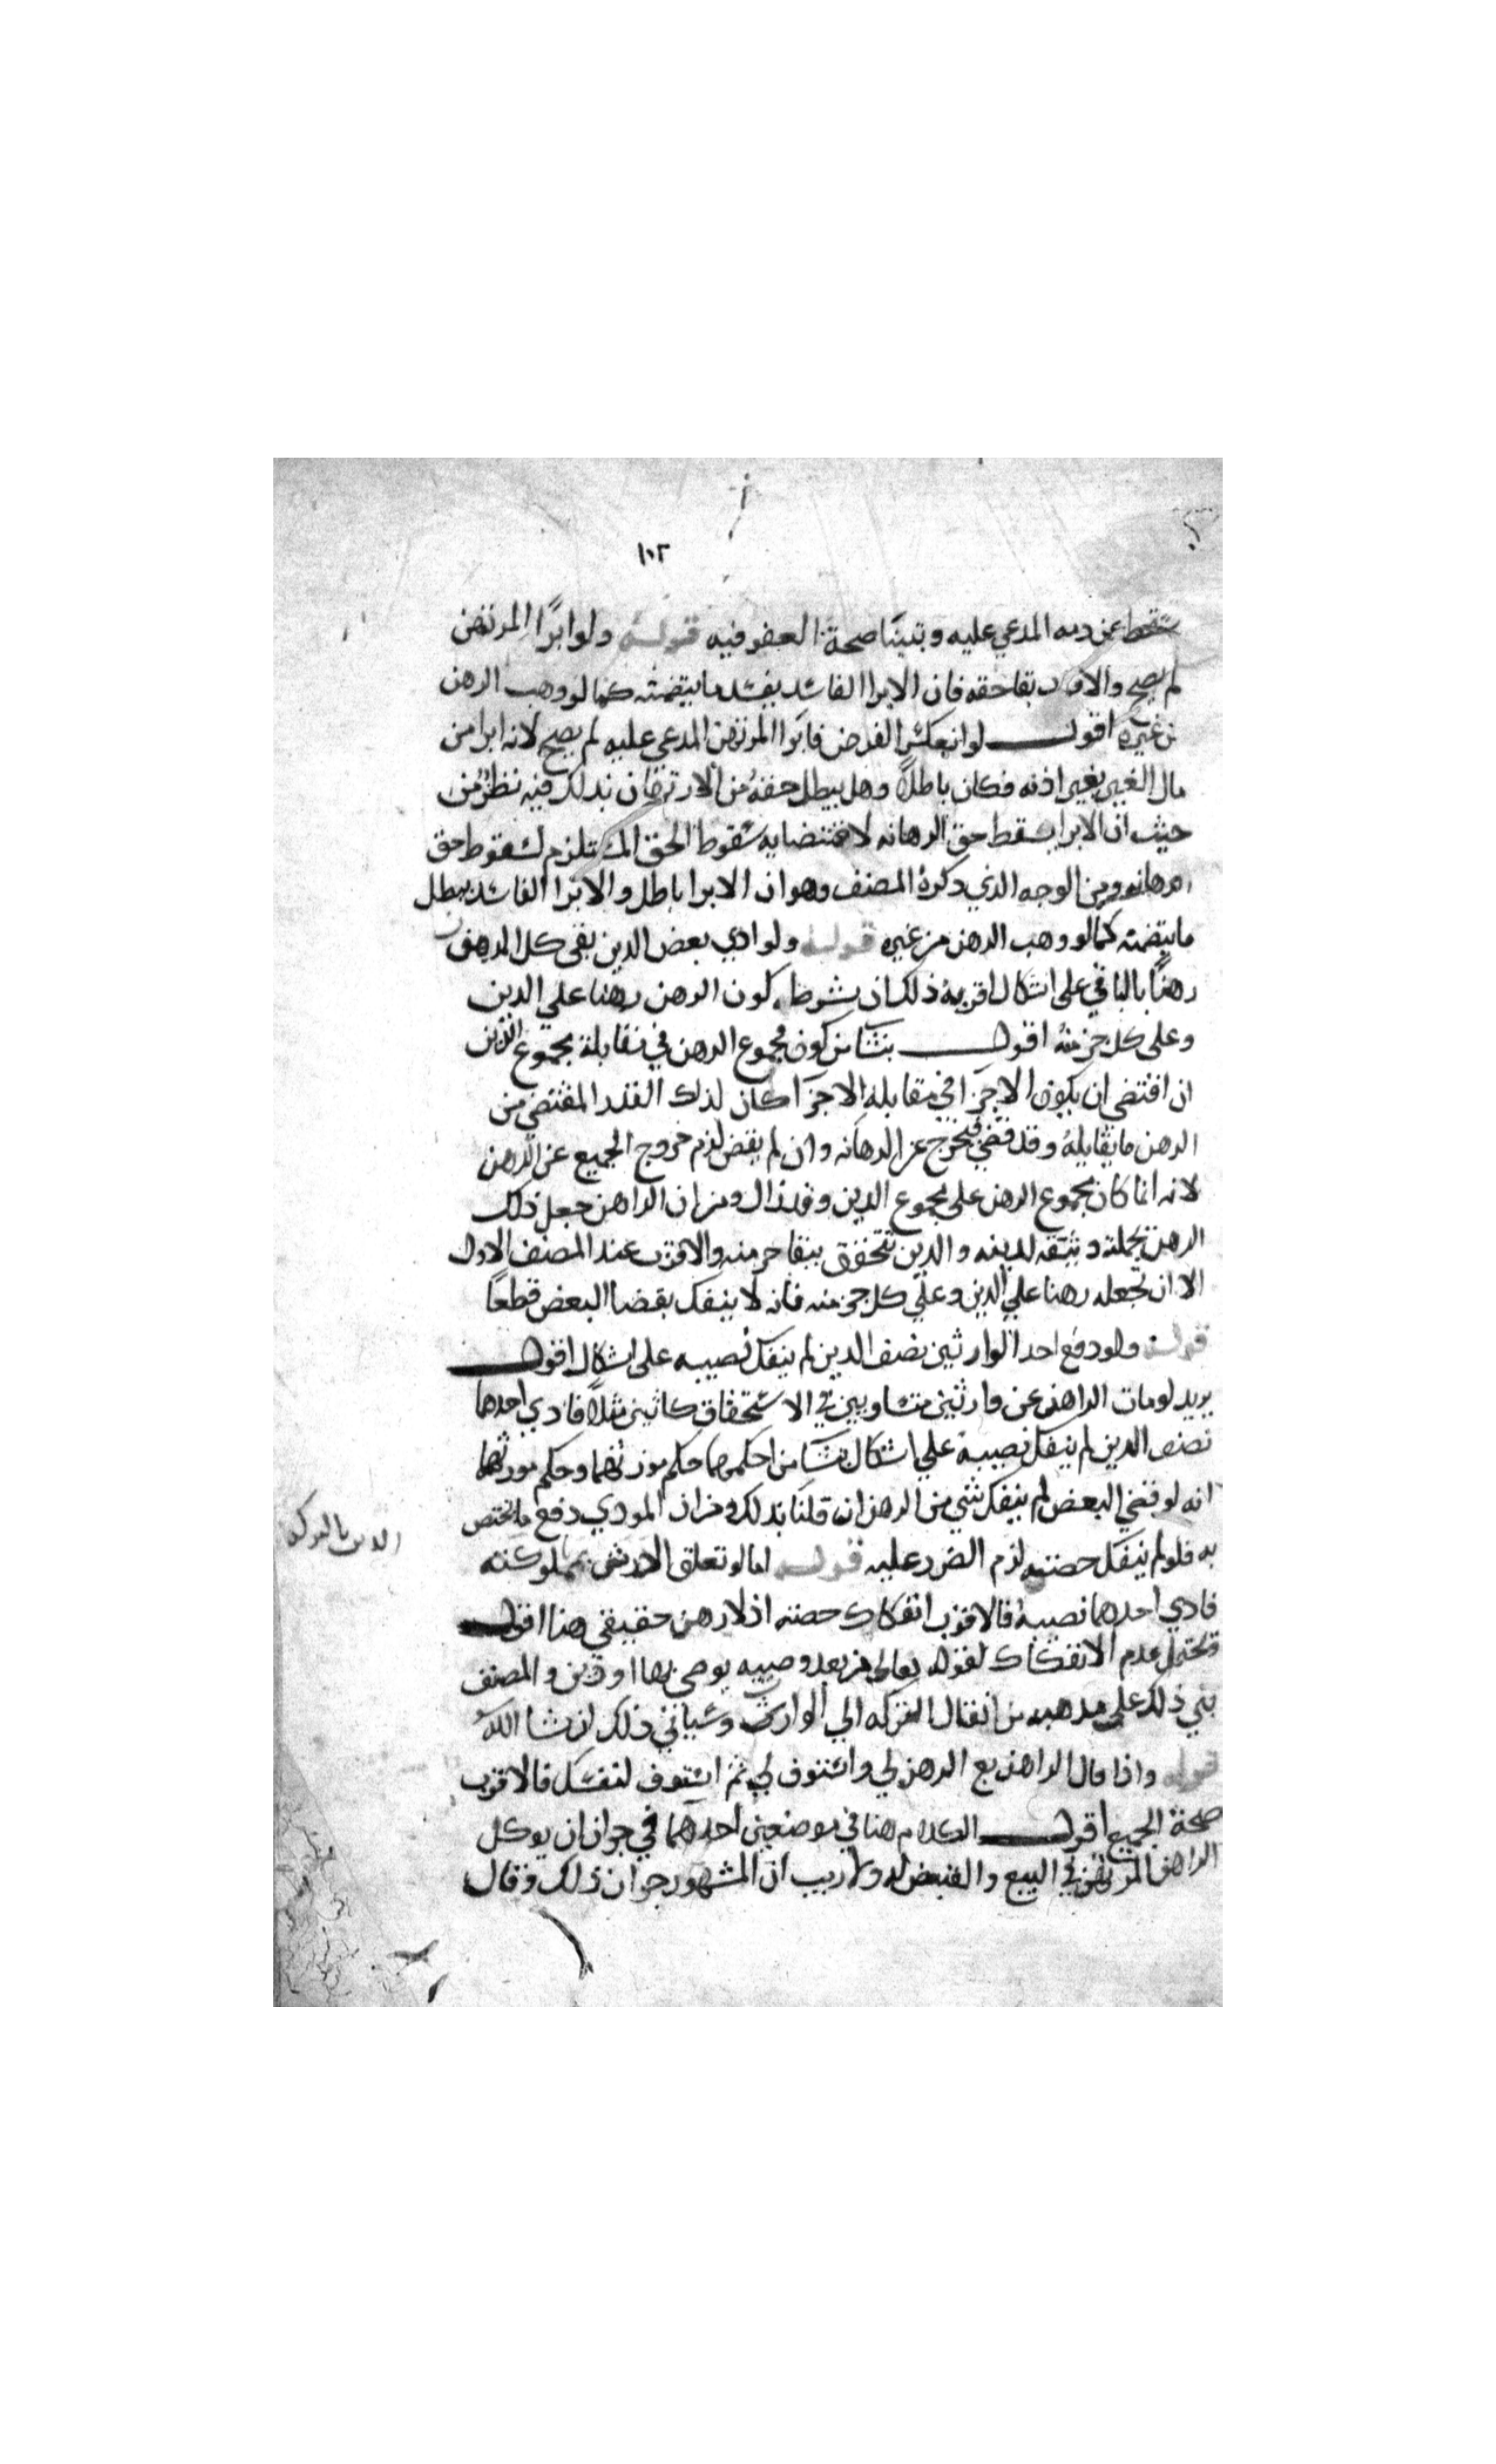 ١٠٢
سقط عن ذمه المدعي عليه وتبينا صحة العفو فيه قوله ولو ابرا المرتهن
لم يصح والاقرب بقا حقه فان الابرا الفاسد يفسد ما يتضمنه كما لو وهب الرهن
من غيره اقول لو انعكس الفرض فابرا المرتهن المدعي عليه لم يصح لانه ابرا من
مال الغير بغير اذنه فكان باطلا وهل يبطل حقه من الارتهان بذلك فيه نظر من
حيث ان الابرا يسقط حق الرهانه لاقتضايه سقوط الحق المستلزم لسقوط حق
الرهانه ومن الوجه الذي ذكره المصنف وهو ان الابرا باطل والابرا الفاسد يبطل
ما يتضمنه كما لو وهب الرهن من غيره قوله ولو ادي بعض الدين بقى كل المرهون
رهنا بالباقي على اشكال اقربه ذلك ان شرط كون الرهن رهنا علي الدين
وعلى كل جز منه اقول ينشا من كون مجموع الرهن في مقابلة مجموع الدين
ان اقتضي ان يكون الاجزا في مقابله الاجزا كان لذلك القدر المقتضي من
الرهن ما يقابله وقد قضي فيخرج عن الرهانه وان لم يقض لزم خروج الجميع عن الرهن
لانه انما كان مجموع الرهن على مجموع الدين وقد زال ومن ان الراهن جعل ذلك
الرهن بجملته وثيقه لدينه والدين يتحقق ببقا جز منه والاقرب عند المصنف الاول
الا ان يجعله رهنا علي الدين وعلي كل جز منه فانه لا ينفك بقضا البعض قطعا
قوله ولو دفع احد الوارثين نصف الدين لم ينفك نصيبه على اشكال اقول
يريد لو مات الراهن عن وارثين متساويين في الاستحقاق كاثنين مثلا فادي احدهما
نصف الدين لم ينفك نصيبه علي اشكال ينشا من احكمهما حكم مورثهما وحكم مورثهما
انه لو قضي البعض لم ينفك شي من الرهن ان قلنا بذلك ومن ان المودي دفع ما يختص
به فلو لم ينفك حصته لزم الضرر عليه قوله اما لو تعلق الارش بمملوكته
فادي احدهما نصيبه فالاقرب انفكاك حصته اذ لا رهن حقيقي هنا اقول
ويحتمل عدم الانفكاك لقوله تعالى من بعد وصيه يوصى بها او دين والمصنف
بني ذلك علي مذهبه من انتقال التركه الي الوارث وسياتي ذلك ان شا الله
قوله واذا قال الراهن بع الرهن لي واستوف لي ثم استوف لنفسك فالاقرب
صحة الجميع اقول الكلام هنا في موضعين احدهما في جواز ان يوكل
الراهن المرتهن في البيع والقبض له ولا ريب ان المشهور جواز ذلك وقال